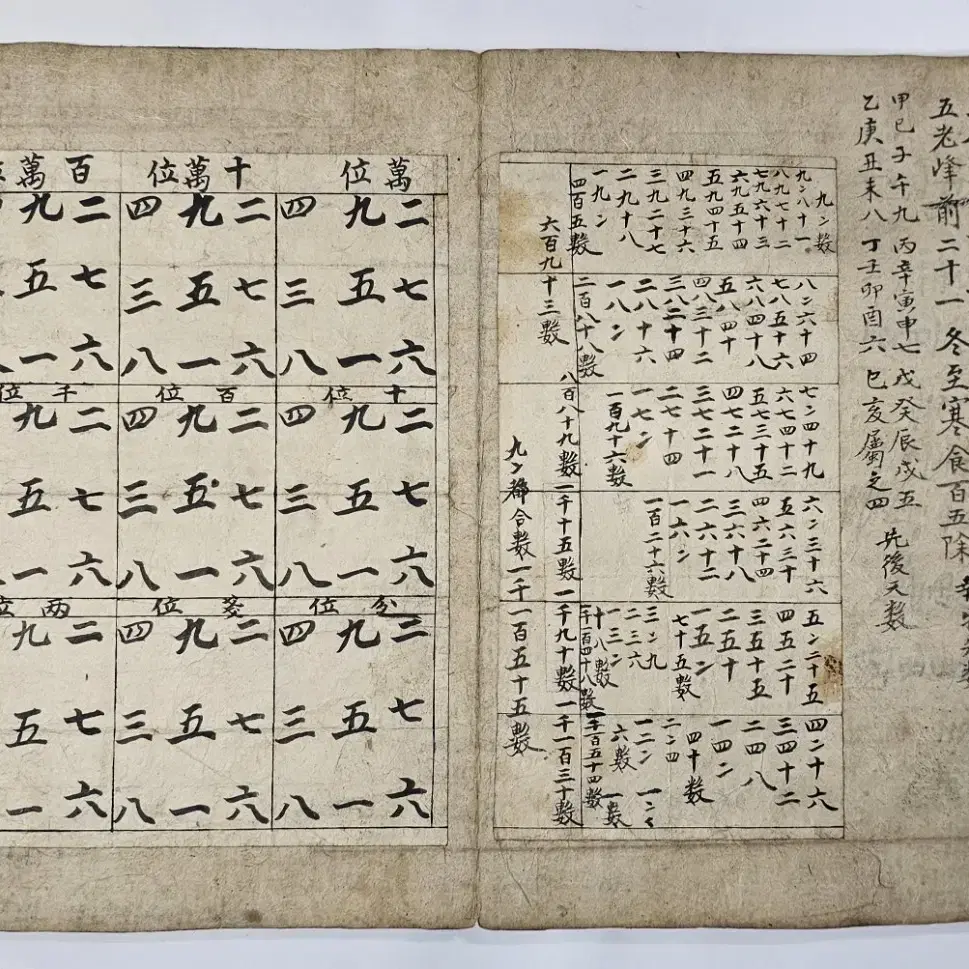 五老峰前二十一 冬至寒食百五除
甲已子午九 丙辛寅申七 戊癸辰戌五
乙庚丑未八 丁壬卯酉六 巳亥屬之四
先後天数
九〻数
九〻八十一
八九七十二
七九六十三
六九五十四
五九四十五
四九三十六
三九二十七
二九十八
一九〻
四百五數
八〻六十四
七八五十六
六八四十八
五八四十
四八三十二
三八二十四
二八十六
一八〻
二百八十八數
七〻四十九
六七四十二
五七三十五
四七二十八
三七二十一
二七十四
一七〻
一百九十六數
六〻三十六
五六三十
四六二十四
三六十八
二六十二
一六〻
一百二十六數
五〻二十五
四五二十
三五十五
二五十
一五〻
七十五數
三〻九
二三六
一三〻
十八數
四〻十六
三四十二
二四八
一四〻
四十數
二〻四
一二〻
六數
一〻〻
一數
六百九十三數
八百八十九數 一千十五數 一千九十數 一千一百三十數
百四十八數 一千百五十四數
九〻 合數一千一百五十五數
萬位
二九四
七五三
六一八
十萬位
二九四
七五三
六一八
百萬
二九
七五
六一
十位
二九四
七五三
六一八
百位
二九四
七五三
六一八
千位
二九
七五
六一
分位
二九四
七五三
六一八
位
二九四
七五三
六一八
两位
二九
七五
六一